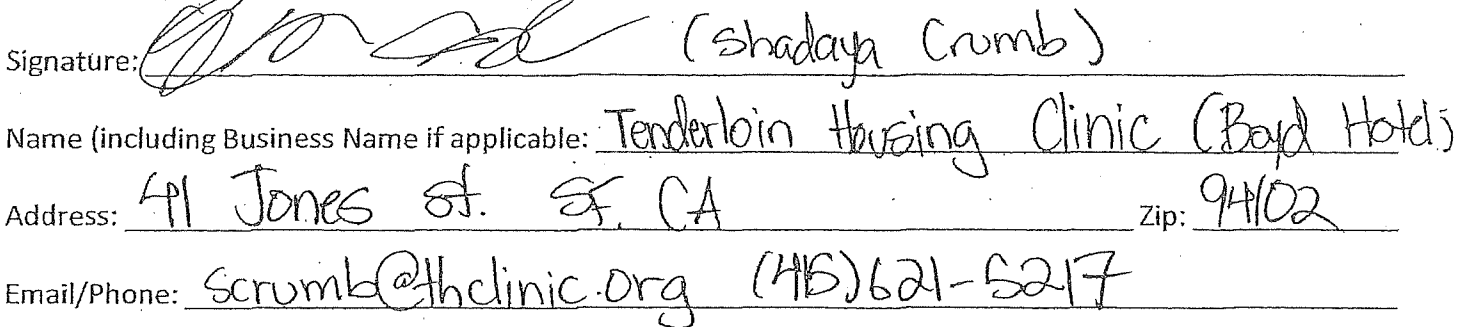 Signature: (Shadaya Crumb)
Name (including Business Name if applicable: Tenderloin Housing Clinic (Boyd Hotel)
Address: 41 Jones st. SF, CA Zip: 94102
Email/Phone: scrumb@thclinic.org (415)621-5217